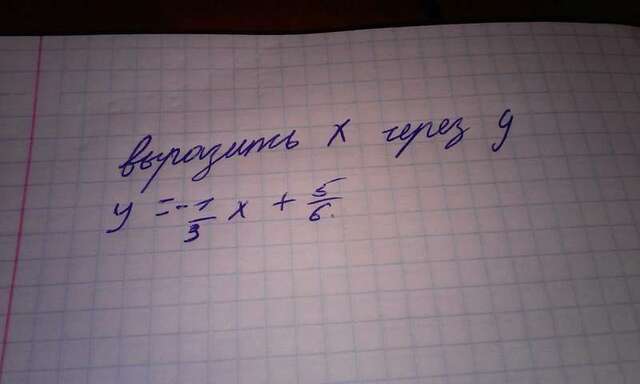 выразить x через y
y = -1/3 x + 5/6.